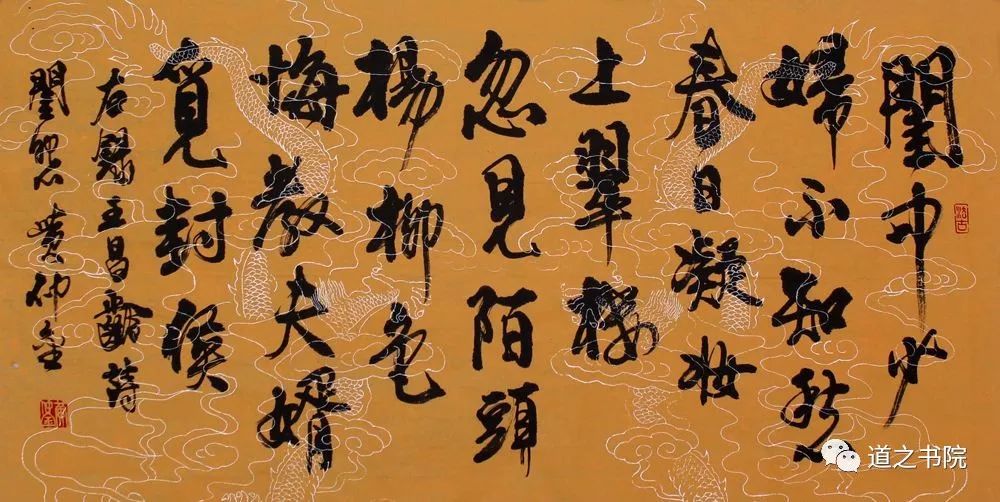 閨中少
婦不知愁
春日凝妝
上翠樓
忽見陌頭
楊柳色
悔教夫婿
覓封侯
右録王昌齡詩
閨怨 黄仲金
道之书院